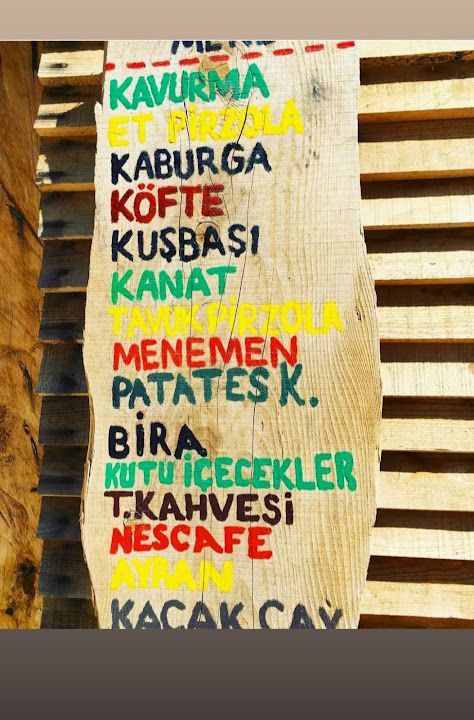 KAVURMA
ET PİRZOLA
KABURGA
KÖFTE
KUŞBAŞI
KANAT
TAVUK PİRZOLA
MENEMEN
PATATES K.
BİRA
KUTU İÇECEKLER
T.KAHVESİ
NESCAFE
AYRAN
KAÇAK ÇAY